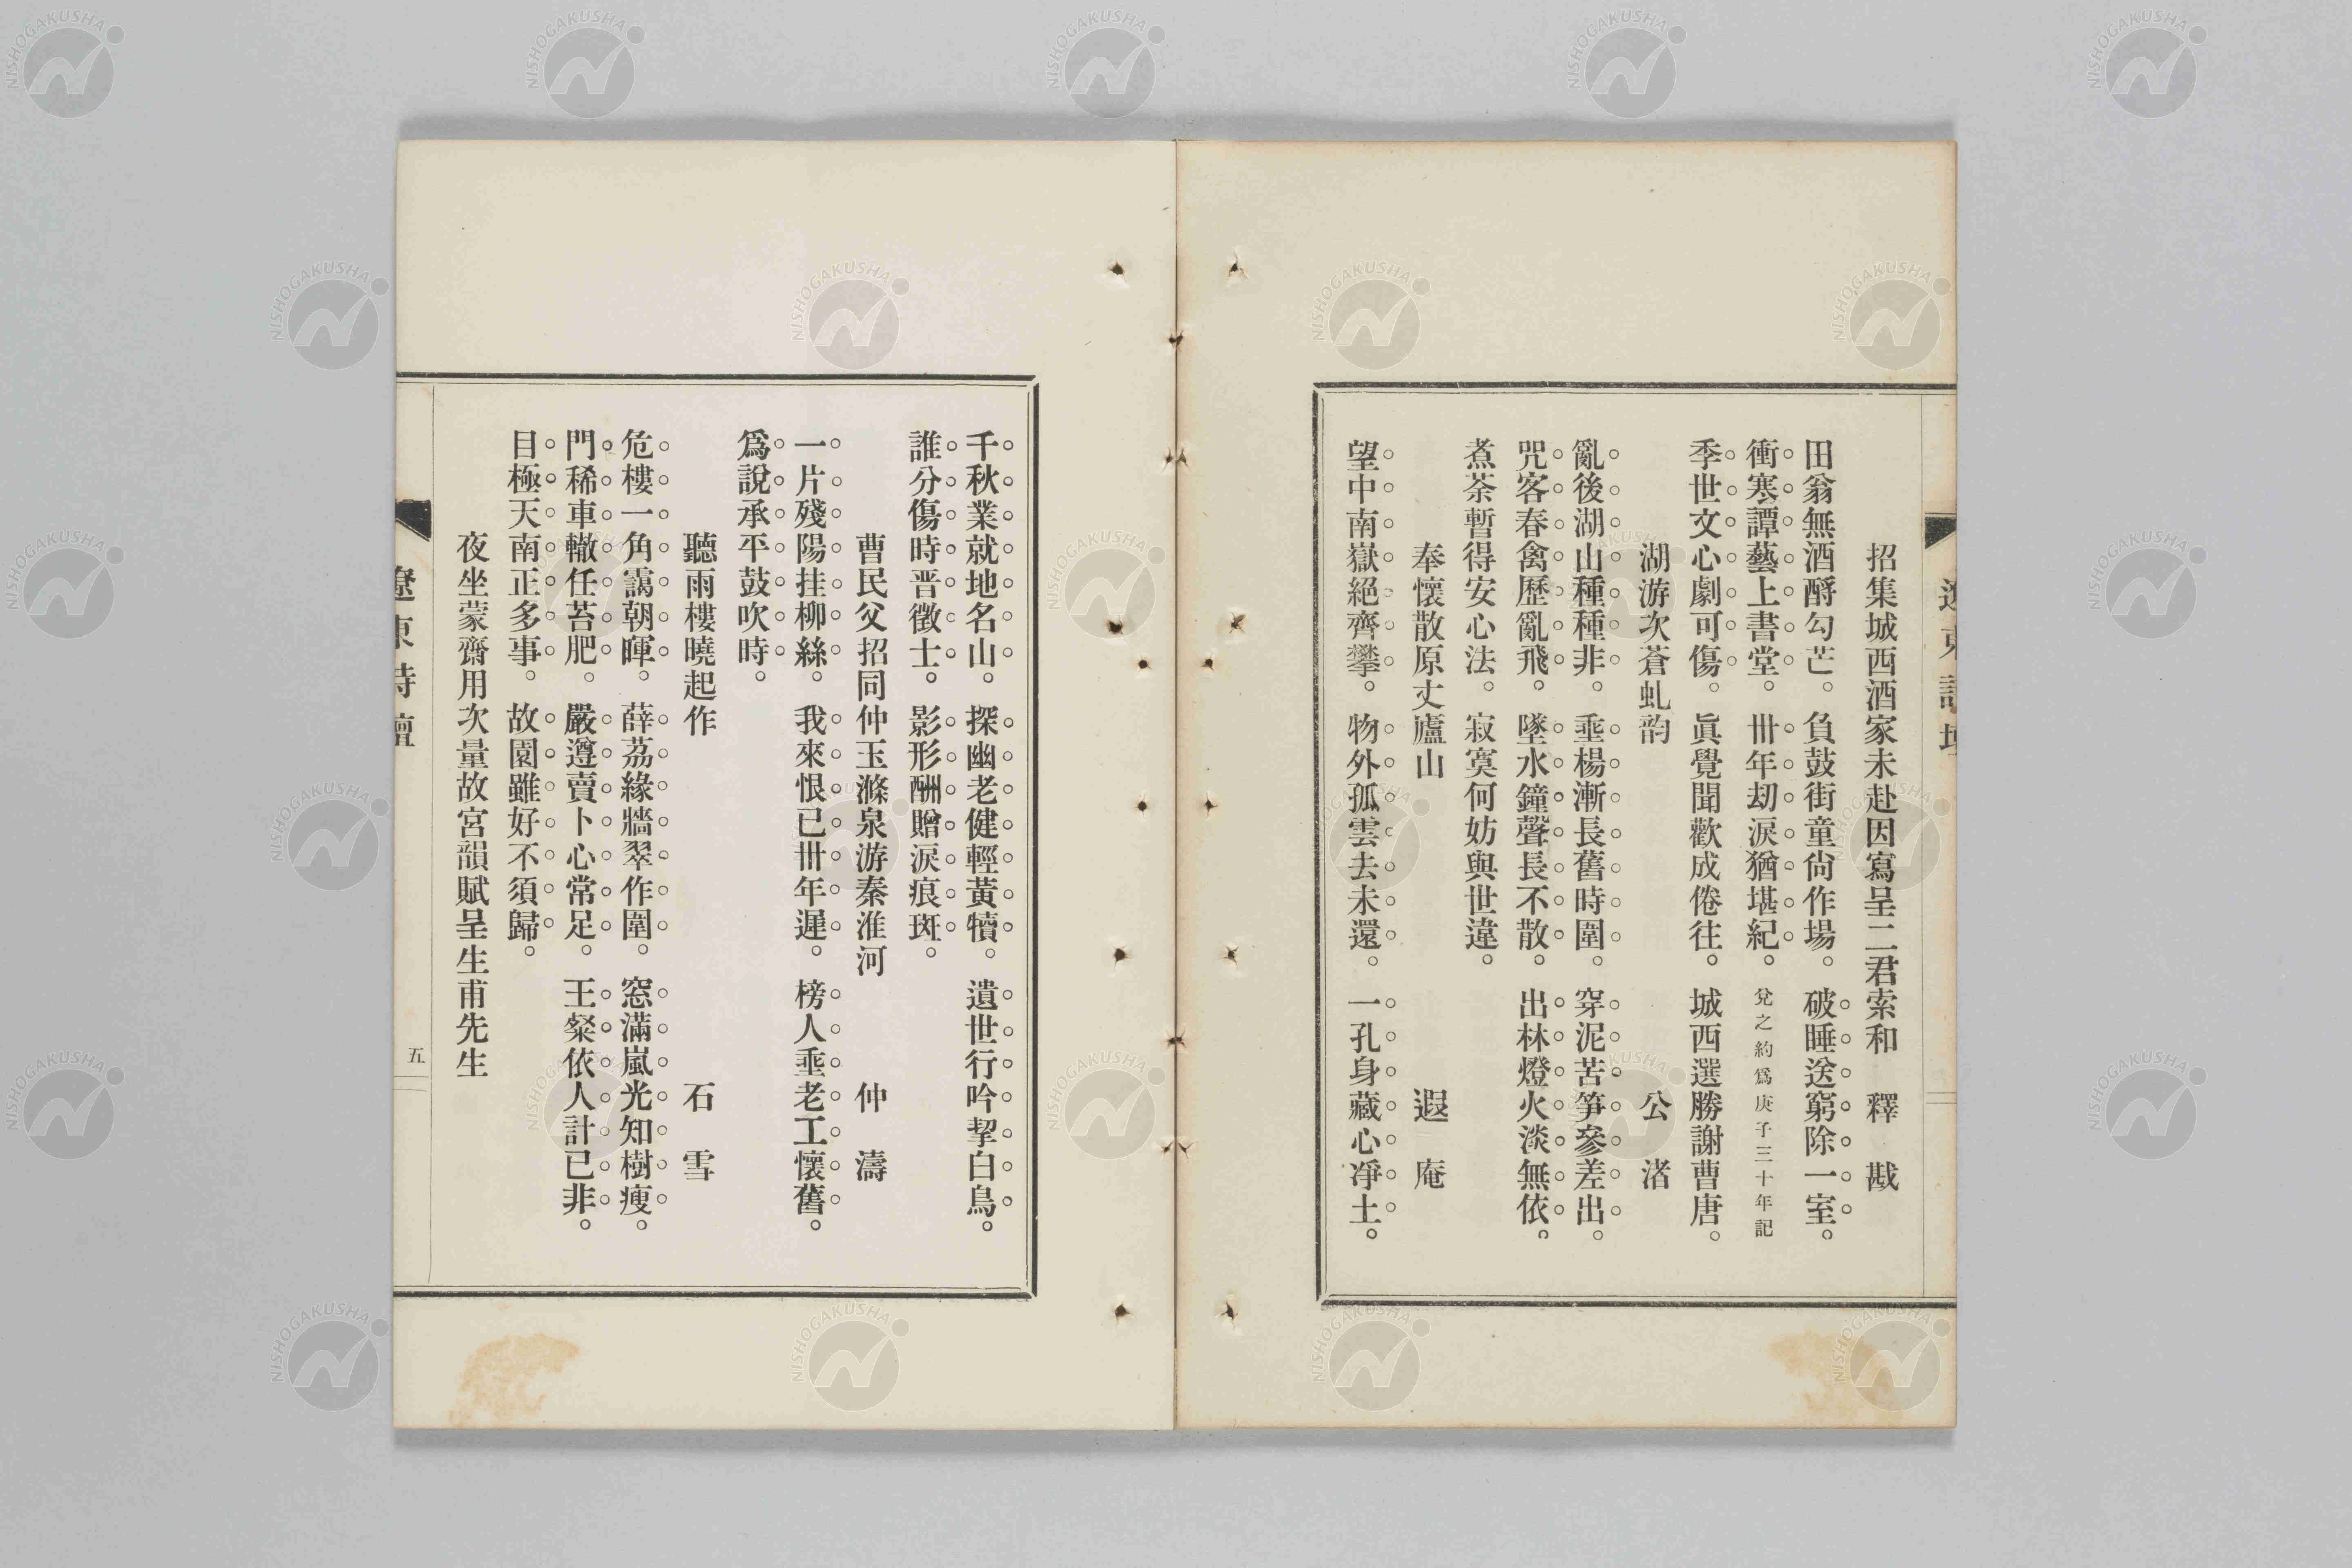 招集城西酒家未赴因寫呈二君索和　釋　戡
田翁無酒酹勾芒。負鼓街童尙作場。破睡送窮除一室。
衝寒譚藝上書堂。卅年刧淚猶堪紀。兌之約爲庚子三十年記
季世文心劇可傷。眞覺聞歡成倦往。城西選勝謝曹唐。
湖游次蒼虬韵　公　渚
亂後湖山種種非。垂楊漸長舊時圍。穿泥苦笋參差出。
咒客春禽歷亂飛。墜水鐘聲長不散。出林燈火淡無依。
煮茶暫得安心法。寂寞何妨與世違。
奉懷散原丈廬山　遐　庵
望中南嶽絕齊攀。物外孤雲去未還。一孔身藏心凈土。
千秋業就地名山。探幽老健輕黃犢。遺世行吟挈白鳥。
誰分傷時晋徵士。影形酬贈淚痕斑。
曹民父招同仲玉滌泉游秦淮河　仲　濤
一片殘陽挂柳絲。我來恨已卅年遲。榜人垂老工懷舊。
爲說承平鼓吹時。
聽雨樓曉起作　石　雪
危樓一角靄朝暉。薜荔緣牆翠作圍。窓滿嵐光知樹瘦。
門稀車轍任苔肥。嚴遵賣卜心常足。王粲依人計已非。
目極天南正多事。故園雖好不須歸。
夜坐蒙齋用次量故宮韻賦呈生甫先生
遼東詩壇
五
NISHOGAKUSHA